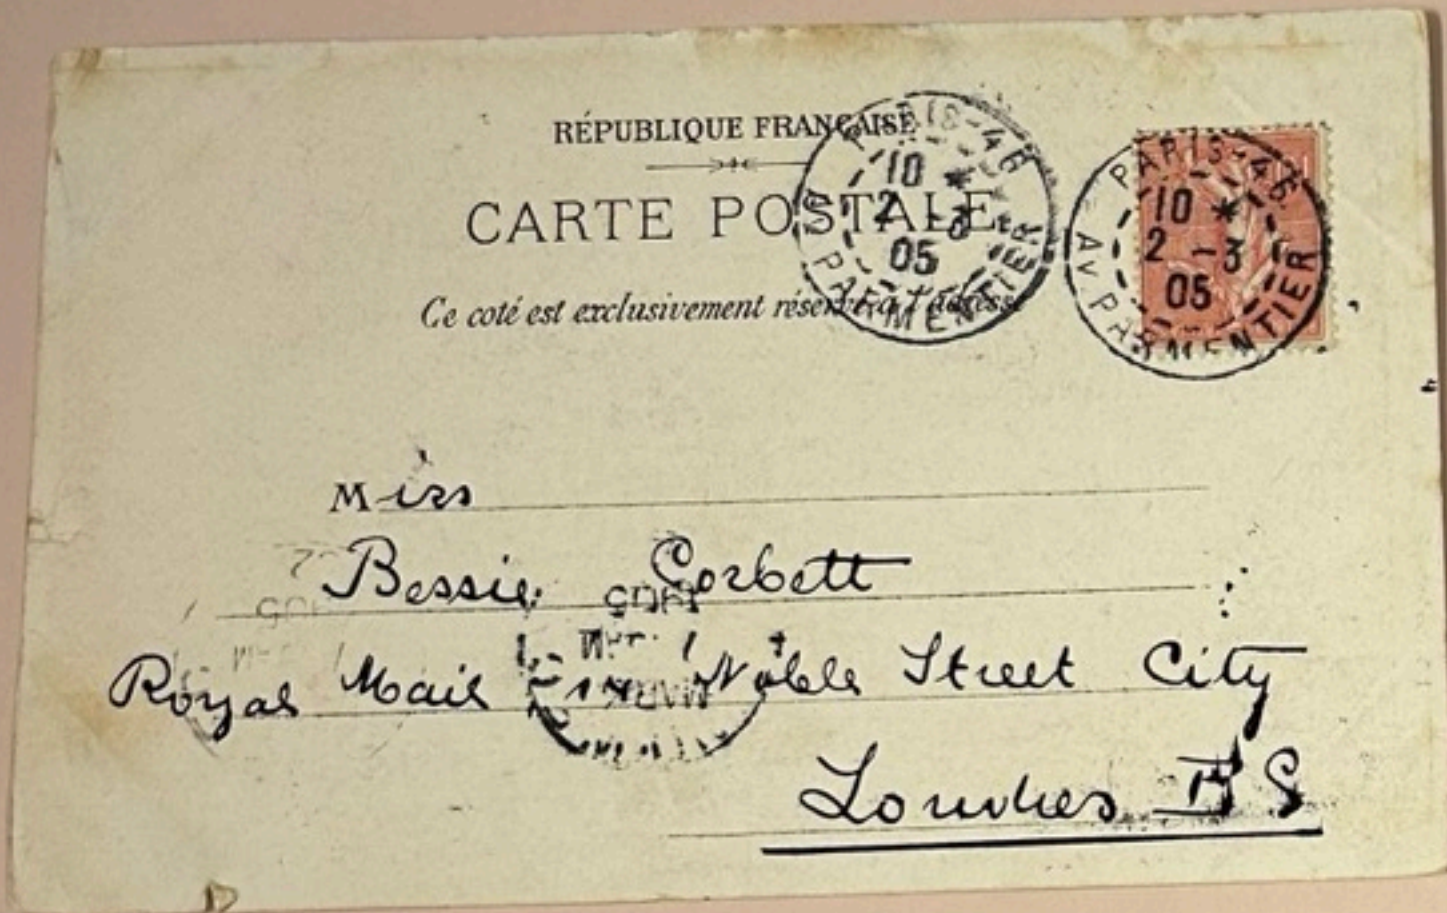 RÉPUBLIQUE FRANÇAISE
CARTE POSTALE
Ce coté est exclusivement réservé à l'adresse
PARIS-46
10 *
2 -3
05
AV PARMENTIER
PARIS-46
10 *
2 -3
05
AV PARMENTIER
Miss
Bessie Corbett
Royal Mail Noble Street City
Londres
1905